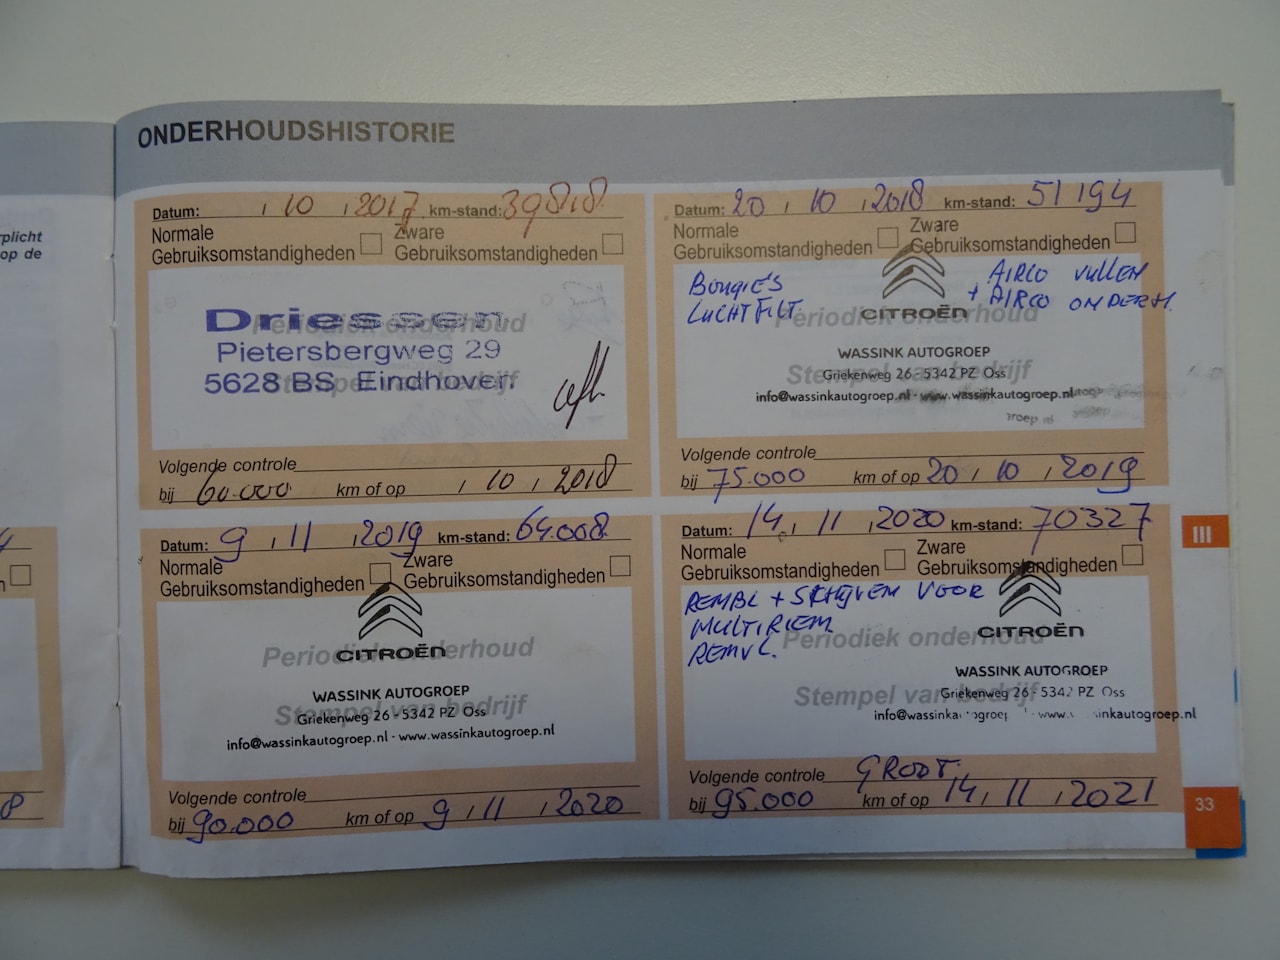 rplicht
op de
ONDERHOUDSHISTORIE
Datum: , 10 , 2017 km-stand: 39818
Normale Gebruiksomstandigheden
Zware Gebruiksomstandigheden
Periodiek onderhoud
Stempel van bedrijf
Driessen
Pietersbergweg 29
5628 BS Eindhoven
Volgende controle
bij 60.000 km of op , 10 , 2018
Datum: 20 , 10 , 2018 km-stand: 51194
Normale Gebruiksomstandigheden
Zware Gebruiksomstandigheden
BOUGIE'S
LUCHTFILT.
+ AIRCO VULLEN
+ AIRCO ONDERH.
Periodiek onderhoud
Stempel van bedrijf
CITROËN
WASSINK AUTOGROEP
Griekenweg 26 - 5342 PZ Oss
info@wassinkautogroep.nl - www.wassinkautogroep.nl
Volgende controle
bij 75.000 km of op 20 , 10 , 2019
Datum: 9 , 11 , 2019 km-stand: 64.008
Normale Gebruiksomstandigheden
Zware Gebruiksomstandigheden
Periodiek onderhoud
Stempel van bedrijf
CITROËN
WASSINK AUTOGROEP
Griekenweg 26 - 5342 PZ Oss
info@wassinkautogroep.nl - www.wassinkautogroep.nl
Volgende controle
bij 90.000 km of op 9 , 11 , 2020
Datum: 14 , 11 , 2020 km-stand: 70327
Normale Gebruiksomstandigheden
Zware Gebruiksomstandigheden
REMBL + SCHIJVEN VOOR
MULTIRIEM
REMVL.
Periodiek onderhoud
Stempel van bedrijf
CITROËN
WASSINK AUTOGROEP
Griekenweg 26 - 5342 PZ Oss
Volgende controle GROOT
bij 95.000 km of op 14 , 11 , 2021
III
33